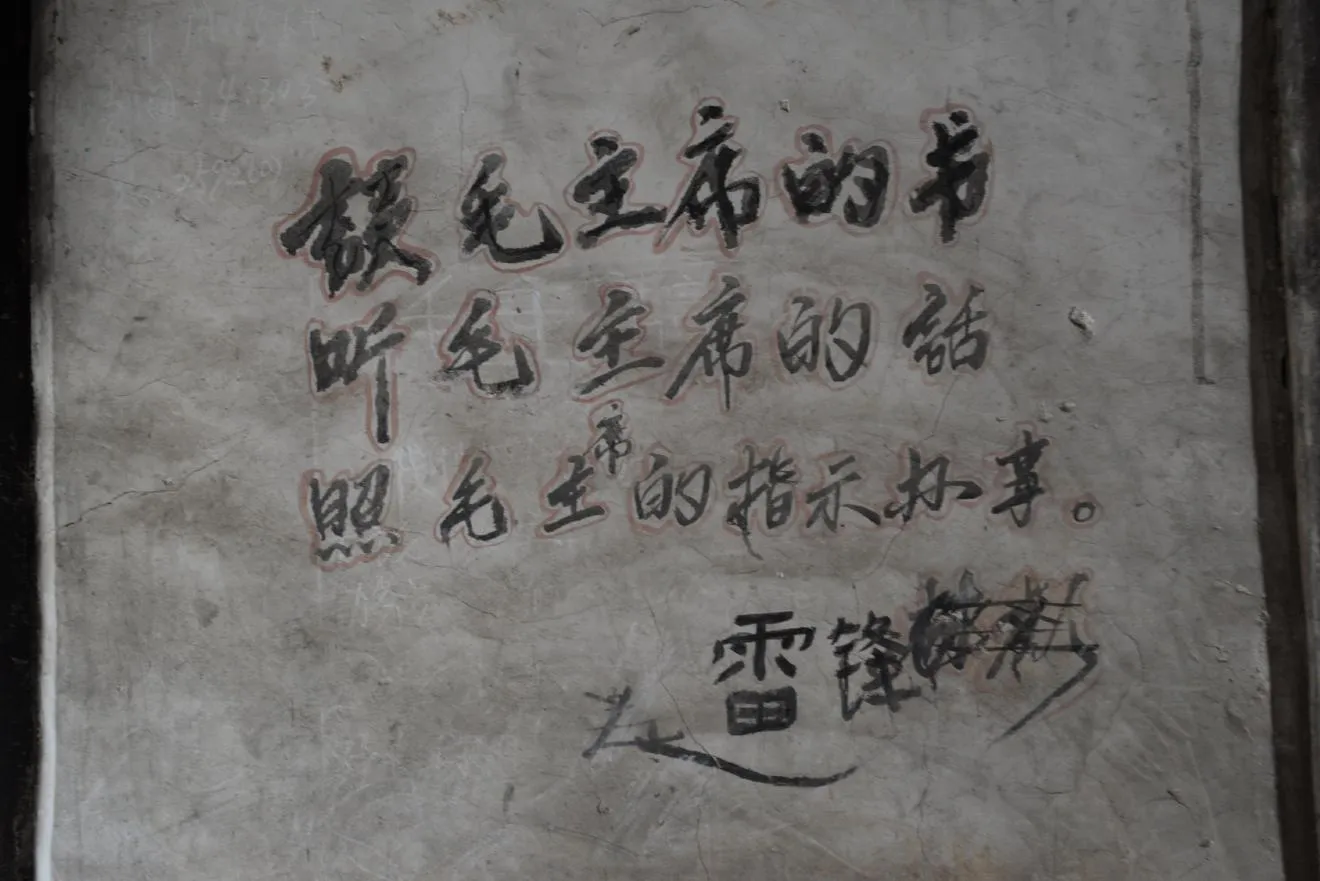 读毛主席的书
听毛主席的話
照毛主席的指示办事。
雷锋